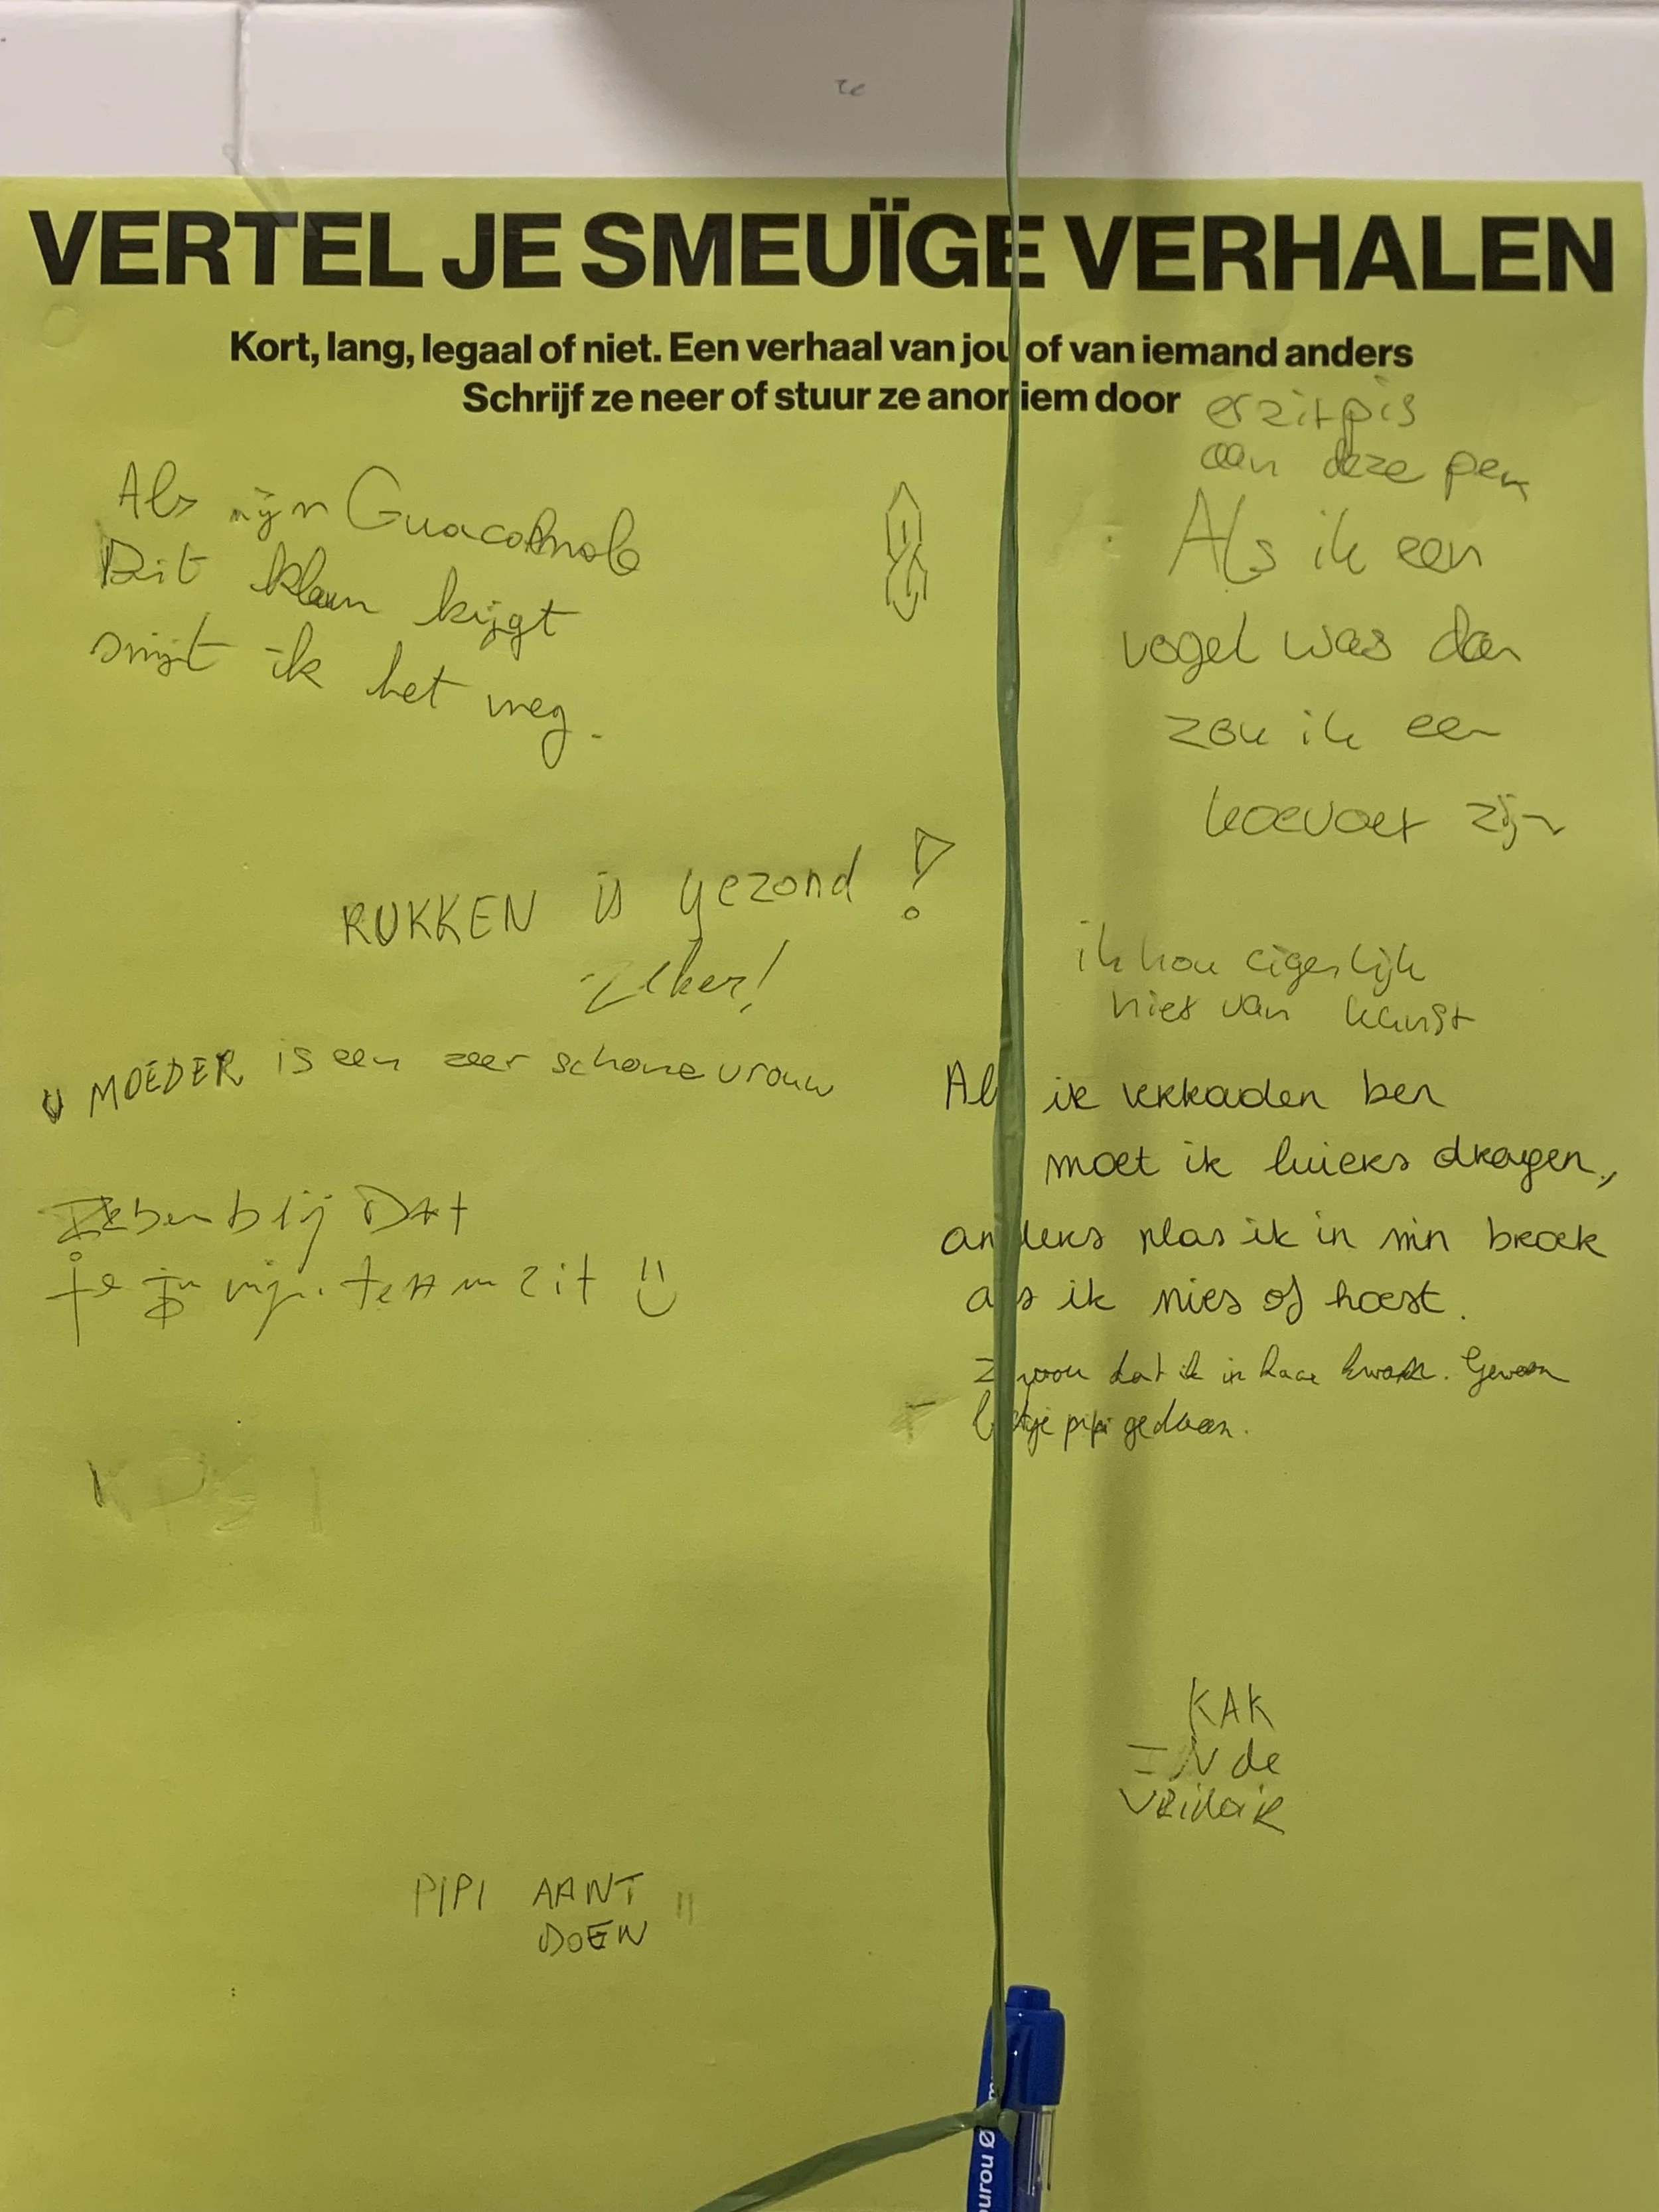 VERTEL JE SMEUÏGE VERHALEN
Kort, lang, legaal of niet. Een verhaal van jou of van iemand anders
Schrijf ze neer of stuur ze anoniem door
er zit pis
aan deze pen
Als mijn Guacomole
Dit klaun krijgt
smijt ik het weg.
Als ik een
vogel was dan
zou ik een
koevoet zijn
RUKKEN is gezond !
zeker!
ik hou eigenlijk
niet van kunst
U MOEDER is een zeer schone vrouw
Als ik verkouden ben
moet ik luiers dragen,
anders plas ik in min broek
als ik nies of hoest.
dat ik in haar kwam. Gewoon
beetje pipi gedaan.
Ik ben blij Dat
je in mijn team zit
KAK
IN de
URINOIR
PIPI AANT
DOEN !!